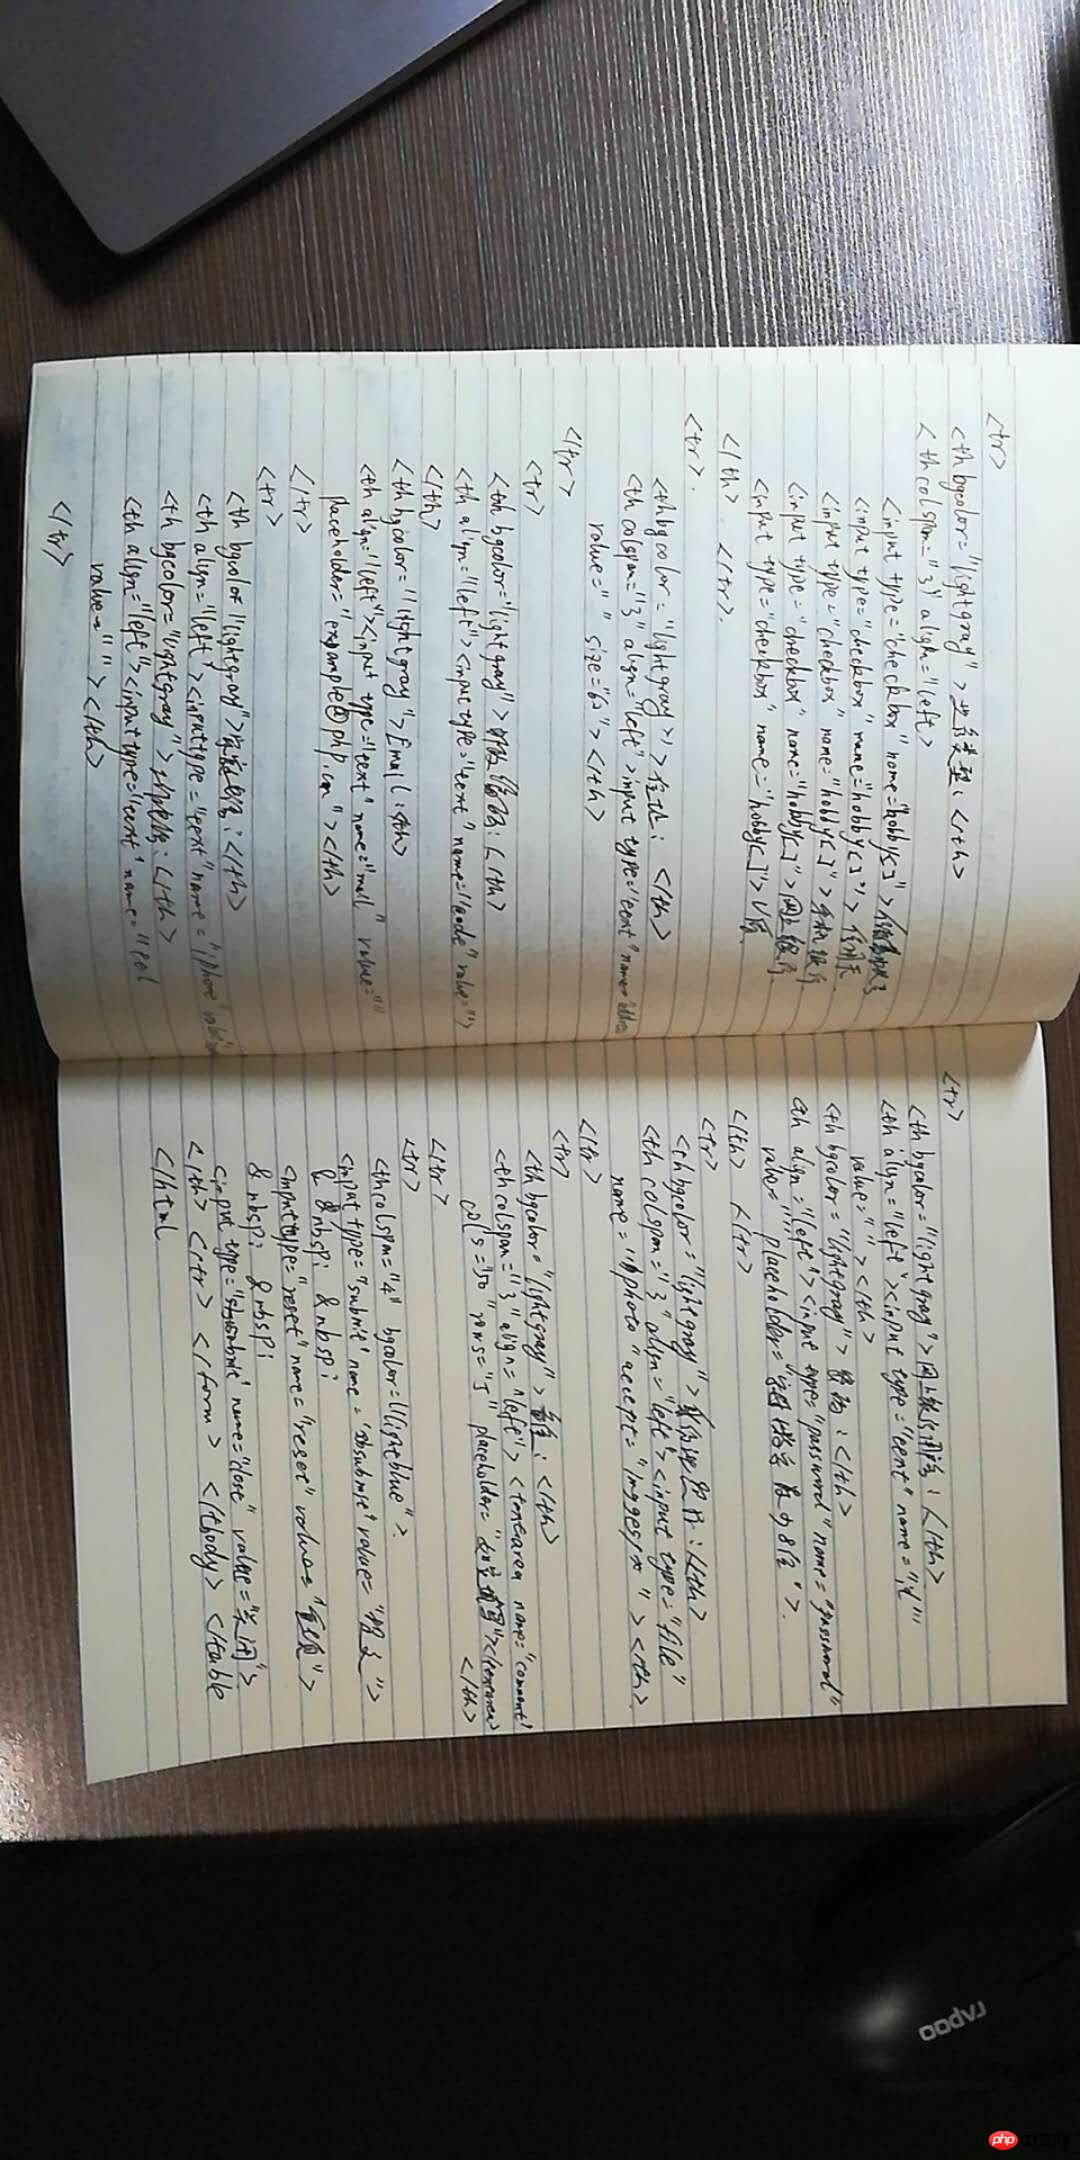 <tr>
<th bgcolor="lightgray">业务类型:</th>
<th colspan="3" align="left>
<input type="checkbox" name="hobby[]">
<input type="checkbox" name="hobby[]">信用卡
<input type="checkbox" name="hobby[]">手机银行
<input type="checkbox" name="hobby[]">网上银行
<input type="checkbox" name="hobby[]">U盾
</th> </tr>.
<tr>.
<th bgcolor="lightgray">住址: </th>
<th colspan="3" align="left">input type="text" name=
value=" " size="60"></th>
</tr>
<tr>
<th bgcolor="lightgray">邮政编码:</th>
<th align="left"><input type="text" name="code" value="">
</th>
<th bgcolor="lightgray">Email:</th>
<th align="left"><input type="text" name="mail" value=""
placeholder="example@php.cn"></th>
</tr>
<tr>
<th bgcolor "lightgray">家庭电话:</th>
<th align="left"><input type="text" name="iphone"
<th bgcolor="lightgray">手机号:</th>
<th align="left"><input type="text" name="tel
value=""></th>
</tr>
<tr>
<th bgcolor="lightgray">网上银行网名:</th>
<th align="left"><input type="text" name="
value=" "></th>
<th bgcolor="lightgray">密码:</th>
<th align="left"><input type="password" name="password"
value="" placeholder=" 8位">.
</th> </tr>
<tr>
<th bgcolor="lightgray"> 照片:</th>
<th colspan="3" align="left"><input type="file"
name="photo" accept="imgges/*"></th>
</tr>
<tr>
<th bgcolor="lightgray">备注:</th>
<th colspan="3" align="left"><textarea name="comment"
cols="50" rows="5" placeholder=" "></textarea>
</th>
</tr>
<tr>
<th colspan="4" bgcolor="lightblue">
<input type="submit" name= value="提交">
& &nbsp; &nbsp;
<input type="reset" name="reset" value="重填">
&nbsp; &nbsp;
<input type= name="close" value="关闭">
</th> </tr> </form> </tbody> </table
</html
rapoo
php 中文网